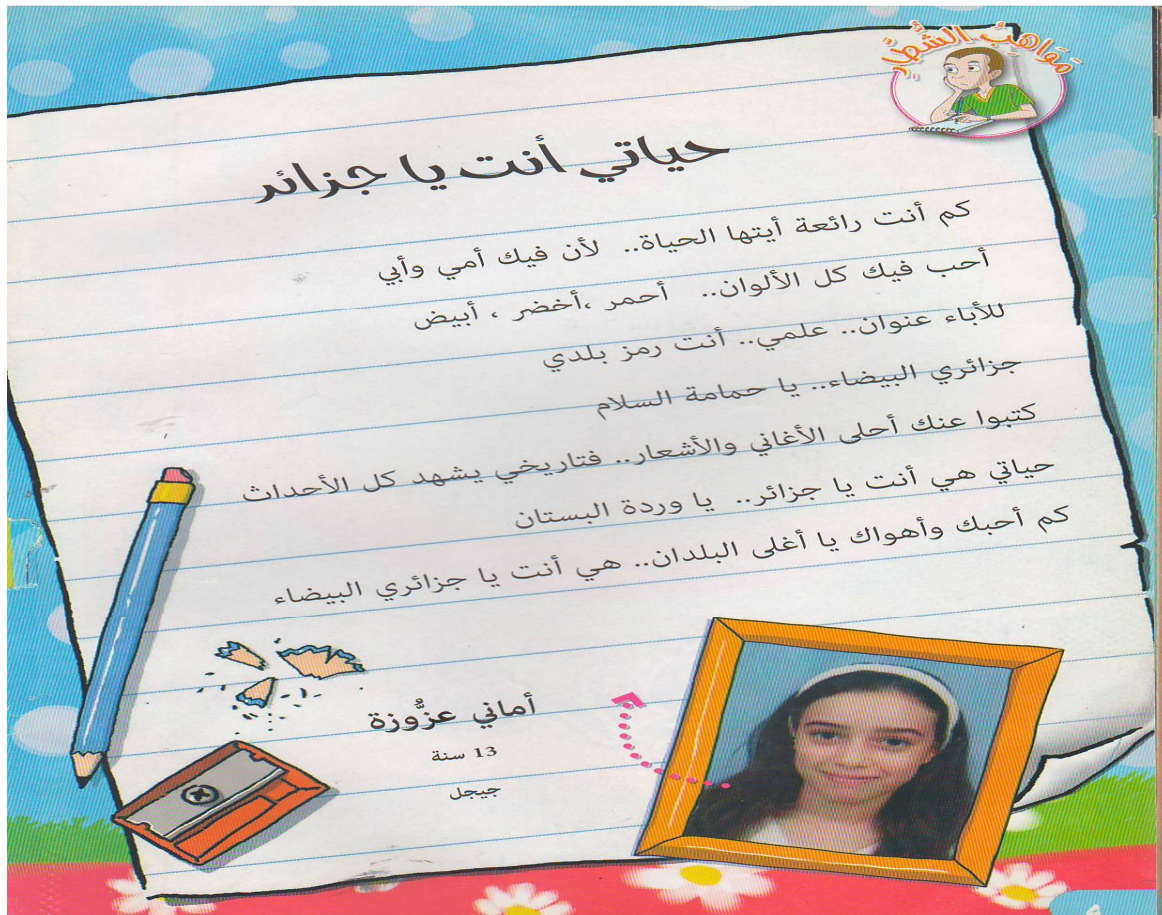 مَوَاهِبُ الشُّطَّارِ
حياتي أنت يا جزائر
كم أنت رائعة أيتها الحياة.. لأن فيك أمي وأبي
أحب فيك كل الألوان.. أحمر ،أخضر ، أبيض
للأباء عنوان.. علمي.. أنت رمز بلدي
جزائري البيضاء.. يا حمامة السلام
كتبوا عنك أحلى الأغاني والأشعار.. فتاريخي يشهد كل الأحداث
حياتي هي أنت يا جزائر.. يا وردة البستان
كم أحبك وأهواك يا أغلى البلدان.. هي أنت يا جزائري البيضاء
أماني عزُّوزة
13 سنة
جيجل